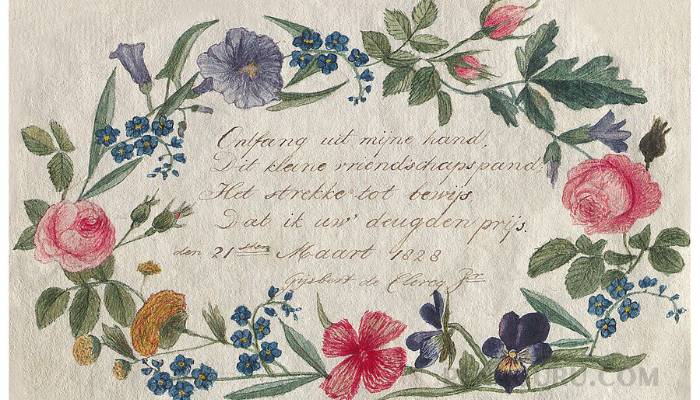 Ontfang uit mijne hand,
Dit kleine vriendschapspand;
Het strekke tot bewijs
Dat ik uw' deugden prijs.
den 21sten Maart 1828
Gijsbert de Clercq Jr